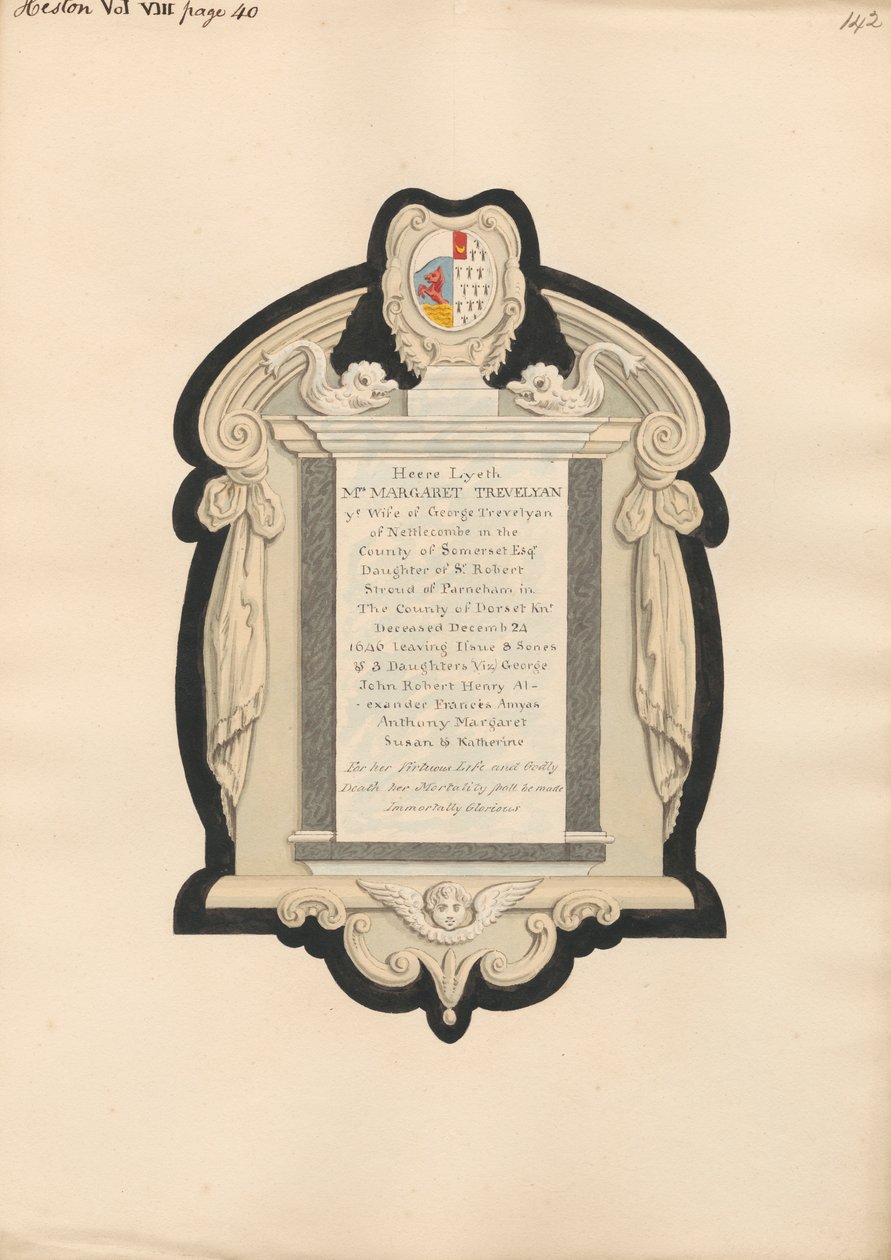 Heston Vol VIII page 40
142
Heere Lyeth
Mrs MARGARET TREVELYAN
ye Wife of George Trevelyan
of Nettlecombe in the
County of Somerset Esqr
Daughter of Sr Robert
Stroud of Parneham in
The County of Dorset Knt
Deceased Decemb 24
1646 leaving Issue 8 Sones
& 3 Daughters Viz) George
John Robert Henry Al-
-exander Frances Amyas
Anthony Margaret
Susan & Katherine
For her Virtuous Life and Godly
Death her Mortality shall be made
Immortally Glorious